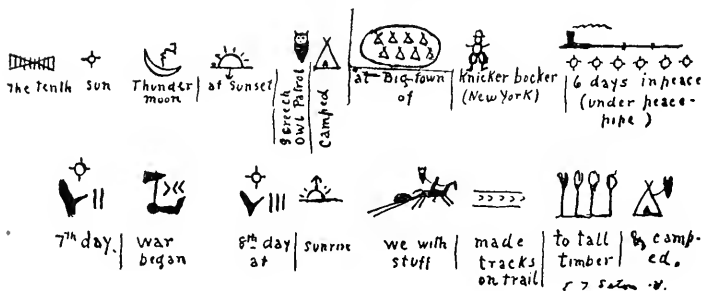 The tenth
Sun
Thunder
moon
at Sunset
Screech
Owl Patrol
camped
at Big-town
of
Knicker bocker
(New York)
6 days in peace
(under peace-
pipe)
7th day.
war
began
8th day
at
sunrise
we with
stuff
made
tracks
on trail
to tall
timber
& camp-
ed.